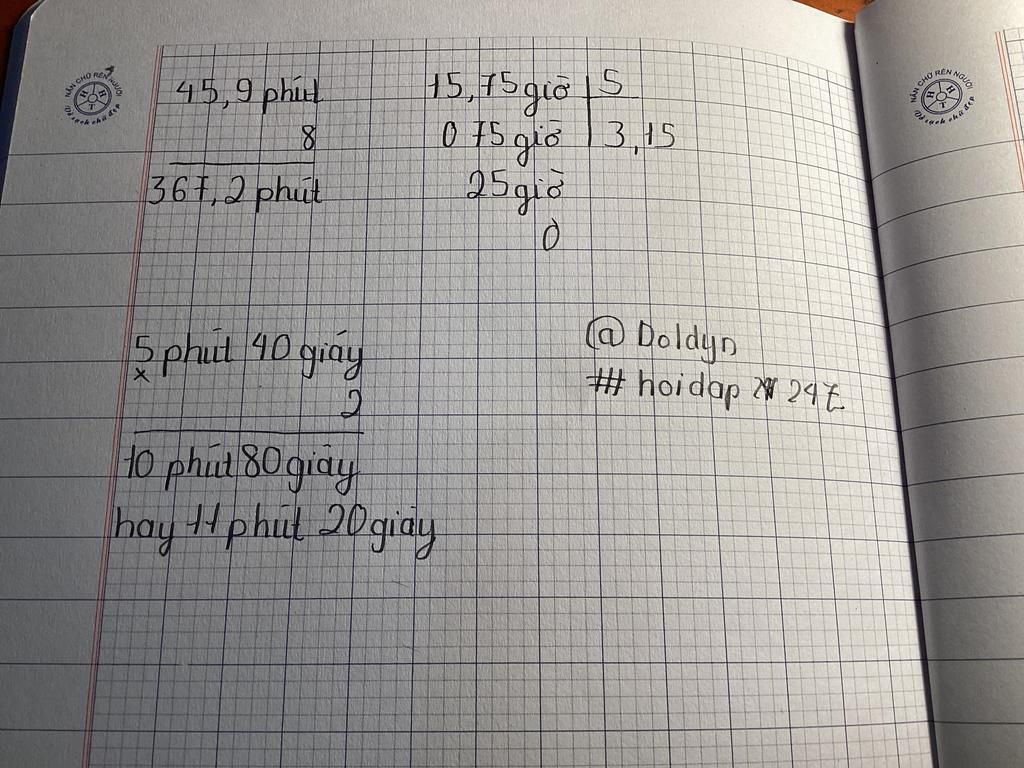 45,9 phút
8
367,2 phút
15,75 giờ 5
0 75 giờ 3,15
25 giờ
0
5 phút 40 giây
x
2
10 phút 80 giây
hay 11 phút 20 giây
@ Doldyn
# hoidap 247
NẮN CHỮ RÈN NGƯỜI
HHT
Vở sạch chữ đẹp
NẮN CHỮ RÈN NGƯỜI
HHT
Vở sạch chữ đẹp